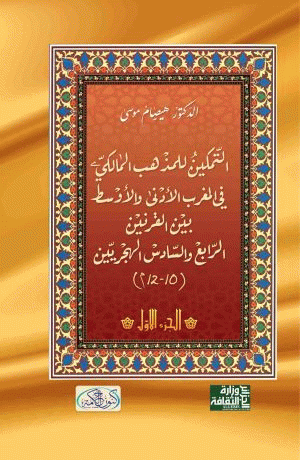 الدكتور هيصام موسى
التمكين للمذهب المالكي
في المغرب الأدنى والأوسط
بين القرنين
الرابع والسادس الهجريين
(10-12م)
الجزء الأول
وزارة
الثقافة